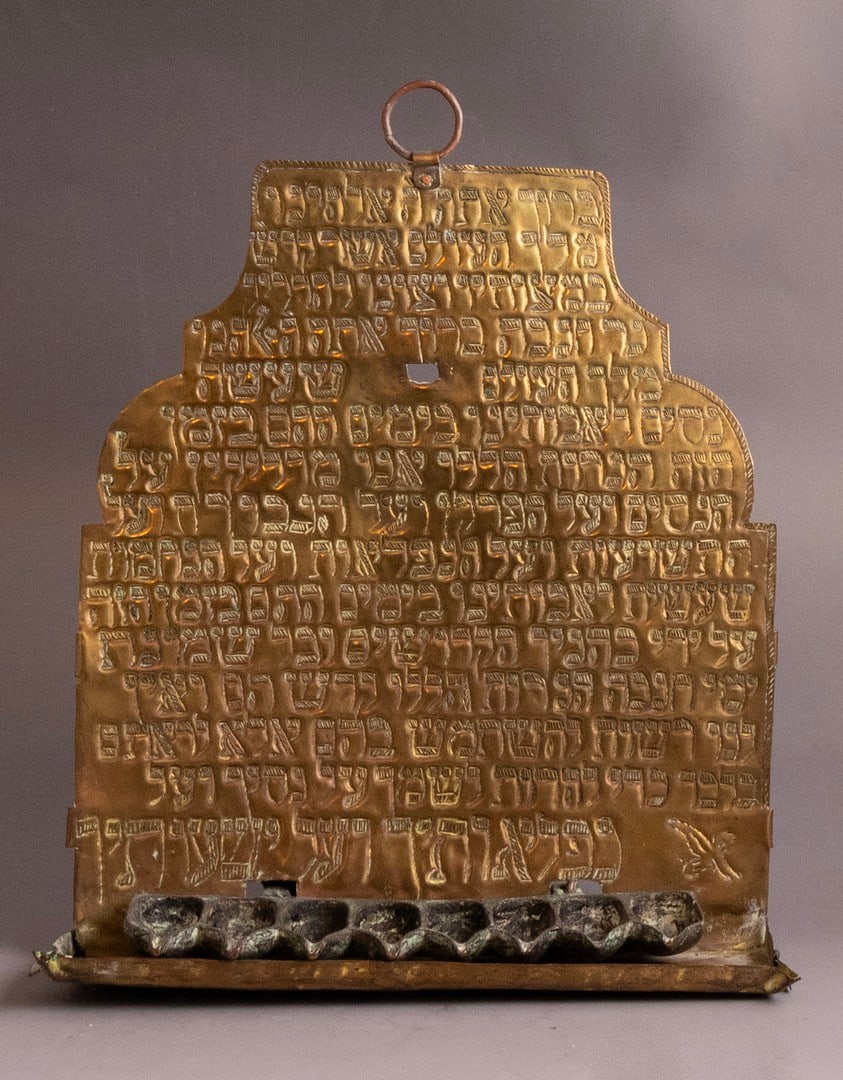 ברוך אתה ה אלהינו
מלך העולם אשר קדש
במצותיו וצונו להדליק
נר חנכה ברוך אתה ה
מלך העולם שעשה
נסים לאבותינו בימים ההם בזמן
הזה הנרות הללו אנו מדליקין על
הנסים ועל הפרקן ועל הגבורות ועל
התשועות ועל הנפלאות ועל הנחמות
שעשית לאבותינו בימים ההם בזמן הזה
על ידי כהניך הקדושים וכל שמונה
ימי חנכה הנרות הללו קדש הם ואין
לנו רשות להשתמש בהם אלא לראותם
בלבד כדי להודות לשמך על נסיך ועל
נפלאותיך ועל ישועותיך